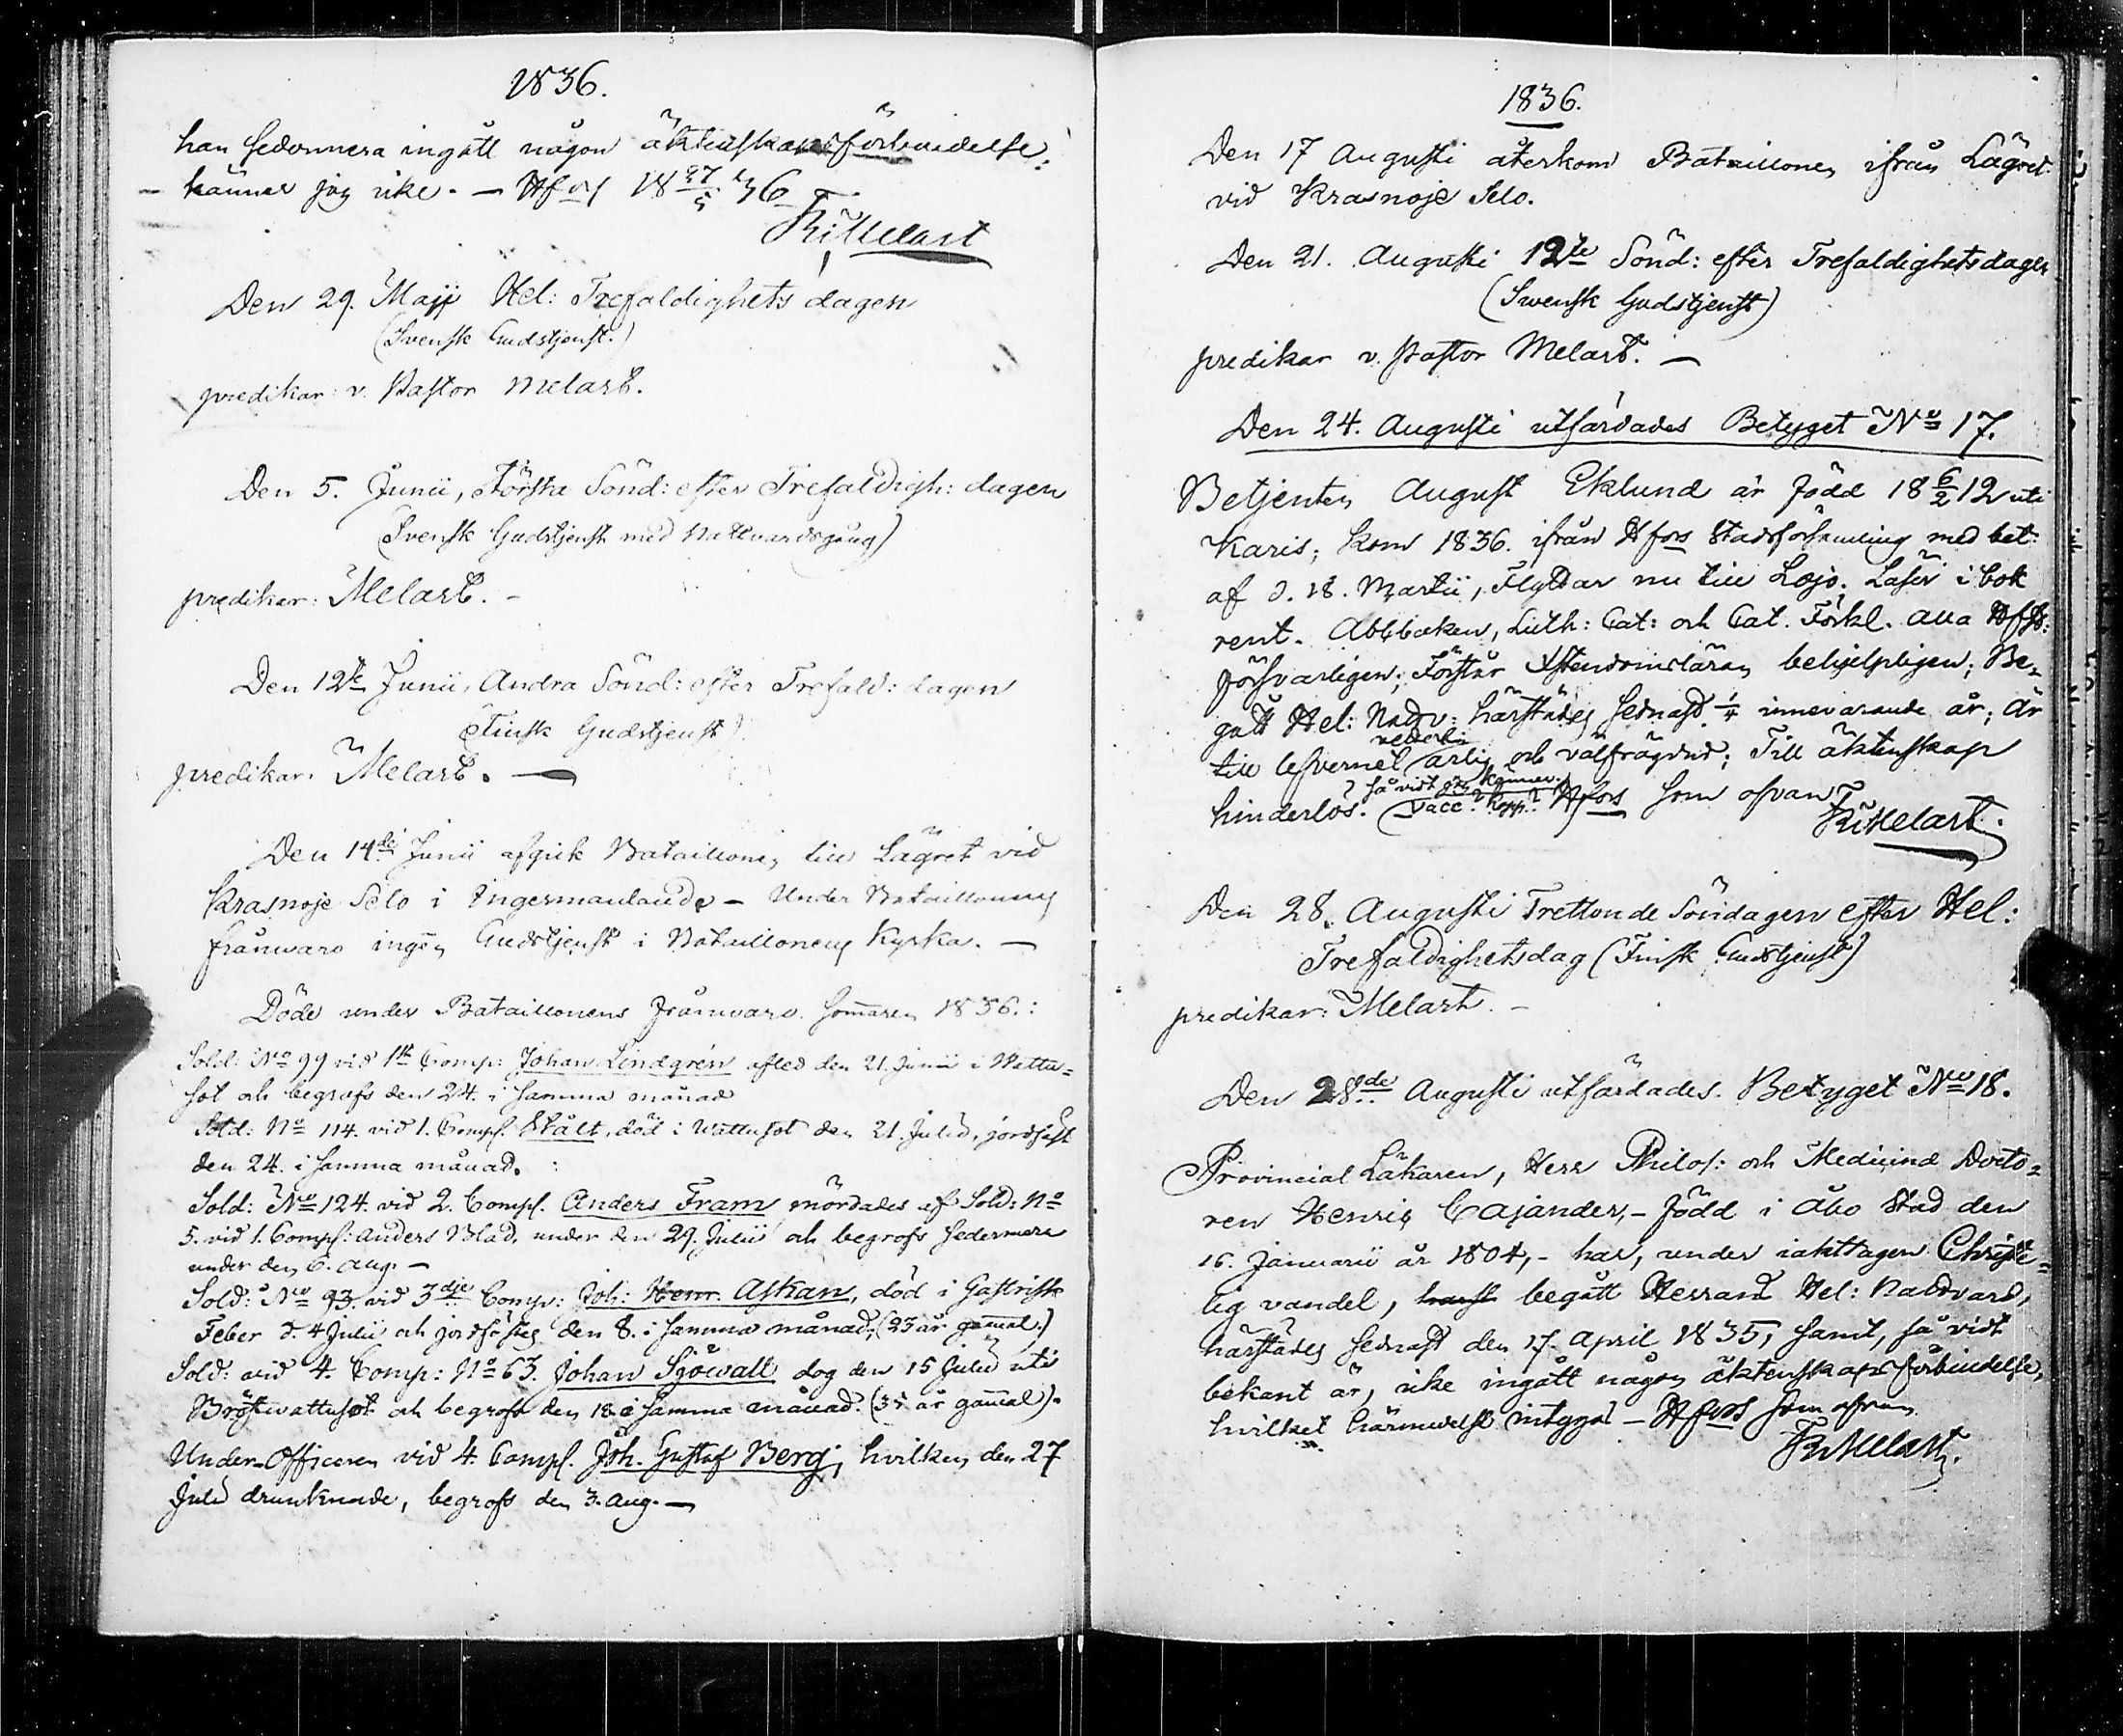 1836.
han sedermera ingått någon äktenskapsförbindelse,
känner jag icke. — Hfors 18 27/5 36
Melart
Den 29. Maji Hel: Trefaldighets dagen
(Svensk Gudstjenst.)
predikar: v. Pastor Melart.
Den 5. Junii, Första Sönd: efter Trefaldigh: dagen
(Svensk Gudstjenst med Nattvardsgång)
predikar: Melart. -
Den 12te Junii, Andra Sönd: efter Trefald: dagen
(Finsk Gudstjenst)
predikar: Melart. —
Den 14de Junii afgick Bataillonen till Lägret vid
Krasnoje Selo i Ingermanland. — Under Bataillonens
frånvaro ingen Gudstjenst i Bataillonens Kyrka. —
Döde under Bataillonens frånvaro Sommaren 1836.:
Sold: No 99 vid 1ste Comp: Johan Lindgrén afled den 21. Junii i Wattu=
sot och begrofs den 24. i samma månad
Sold: No 114. vid 1. Comp. Stålt, död i Wattusot den 21. Julii, jordfäst
den 24. i samma månad.
Sold: No 124. vid 2. Comp. Anders Fram mördades af Sold: No
5. vid 1. Comp: Anders Blad, under den 29. Julii och begrofs sedermera
under den 6. Aug. —
Sold: No 93. vid 3dje Comp: Joh: Henr. Askan, död i Gastrisk
Feber d. 4 Julii och jordfästes den 8. i samma månad. (23 år gamal.)
Sold: vid 4. Comp: No 63. Johan Sjöwall dog den 15 Julii uti
Bröstwattusot och begrofs den 18. i samma månad. (35 år gamal).
Under-Officeren vid 4. Comp. Joh. Gustaf Berg, hvilken den 27
Julii drunknade, begrofs den 3. Aug. —
1836.
Den 17 Augusti återkom Bataillonen ifrån Lägret
vid Krasnoje Selo.
Den 21. Augusti 12te Sönd: efter Trefaldighetsdagen
(Swensk Gudstjenst)
predikar v. Pastor Melart. —
Den 24. Augusti utfärdades Betyget No 17.
Betjenten August Eklund är född 18 6/2 12 uti
Karis; kom 1836. ifrån Hfors Stadsförsamling med bet
af d. 18. Martii, Flyttar nu till Lojo. Läser i bok
rent. Abbboken, Luth: Cat: och Cat. Förkl. alla
försvarligen; Förstår Xstendomsläran behjelpligen; Be-
gått Hel: Nadv: härstädes sednast 1/4 innevarande år; Är
till lefvernet ärlig och välfrägdad; Till äktenskap
så vidt jag känner
hinderlös. (vacc? Kopp?) Hfors som ofvan
Melart.
Den 28. Augusti Trettonde Söndagen efter Hel:
Trefaldighetsdag (Finsk Gudstjenst)
predikar: Melart. -
Den 28de Augusti utfärdades Betyget No 18.
Provincial Läkaren, Herr Philos: och Medicinæ Docto=
ren Henric Cajander, - född i Åbo Stad den
16. Januarii år 1804, - har, under iakttagen Christe=
lig vandel, begått Herrans Hel: Nattvard,
härstädes sednast den 17. April 1835, samt, så vidt
bekant är, icke ingått någon äktenskapsförbindelse,
hvilket härmedelst intygas — Hfors som ofvan
Melart.